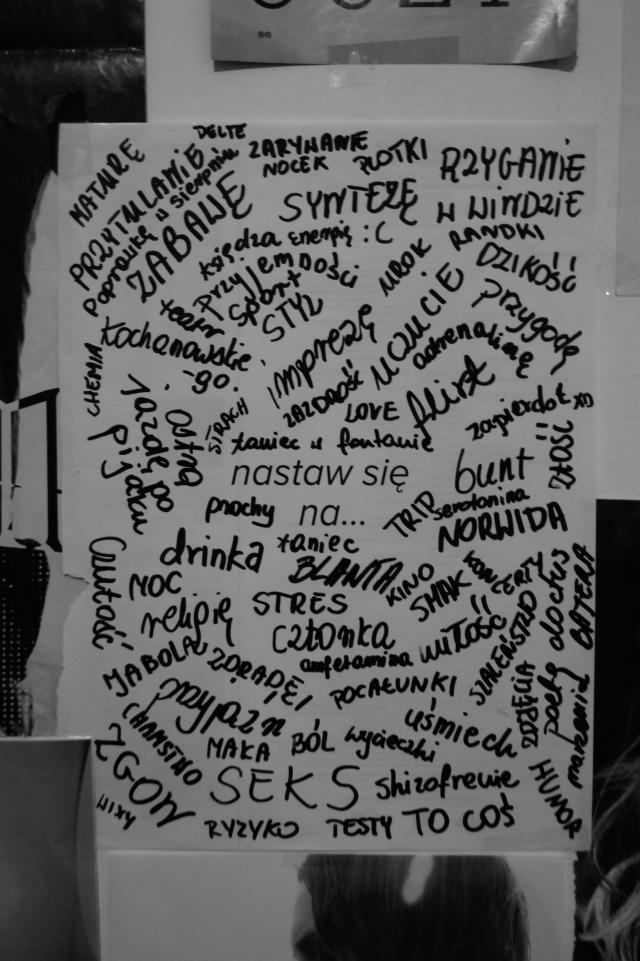 MATURĘ
DELTE
PRZYTULANIE
poprawkę w sierpniu
ZARYWANIE
NOCEK
PLOTKI
RZYGANIE
W WINDZIE
ZABAWĘ
SYNTEZĘ
RANDKI
księdza energię :C
UROK
DZIKOŚĆ
przyjemności
teatr
sport
STYZ
UCZUCIE
przygodę
Kochanowskie
-go.
imprezę
adrenalinę
CHEMIA
ostrą
jazdę po
pijaku
STRACH
ZAZDROŚĆ
LOVE
flirt
zapierdol XD
taniec w fontanie
ZŁOŚĆ
nastaw się
na...
bunt
prochy
TRIP
serotonina
NORWIDA
drinka
taniec
BLANTA
KINO
SMAK
KONCERTY
Czułość
NOC
religię
STRES
CZŁONKA
miłość
SZALEŃSTWO
podły
BATERIA
JABOLA
ZDRADĘ!
amfetamina
POCAŁUNKI
ZDJĘCIA
marzenia
przyjaźń
uśmiech
CHAMSTWO
MAKA
BÓL
wycieczki
HUMOR
ZGON
SEKS
shizofrenie
WIXY
RYZYKO
TESTY
TO COŚ